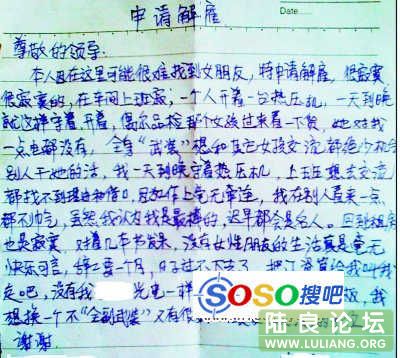 申请解雇
Date
尊敬的领导:
本人因在这里可能很难找到女朋友,特申请解雇,很寂寞
很寂寞的,在车间上班寂,一个人开着一台热压机,一天到晚
就这样守着,开着,偶尔品检那个女孩过来看一下货,她对我
一点电都没有,全身“武装”想和其它女孩交流都绝少机会
别人干她的活,我一天到晚守着热压机,上五天想去交流
都找不到理由和借口,因工作上毫无牵连,我在别人看来一点
都不帅气,虽然我认为我是最棒的,迟早都会是名人。回到租房
也是寂寞,对着几本书发呆,没有女性朋友的生活真是毫无
快乐可言,辞工要一个月,日子过不下去了,把工资算给我叫我
走吧,没有我 光电一样
想换一个不“全副武装”又有很
谢谢
SOSO搜吧
陆良论坛
WWW.LULIANG.ORG